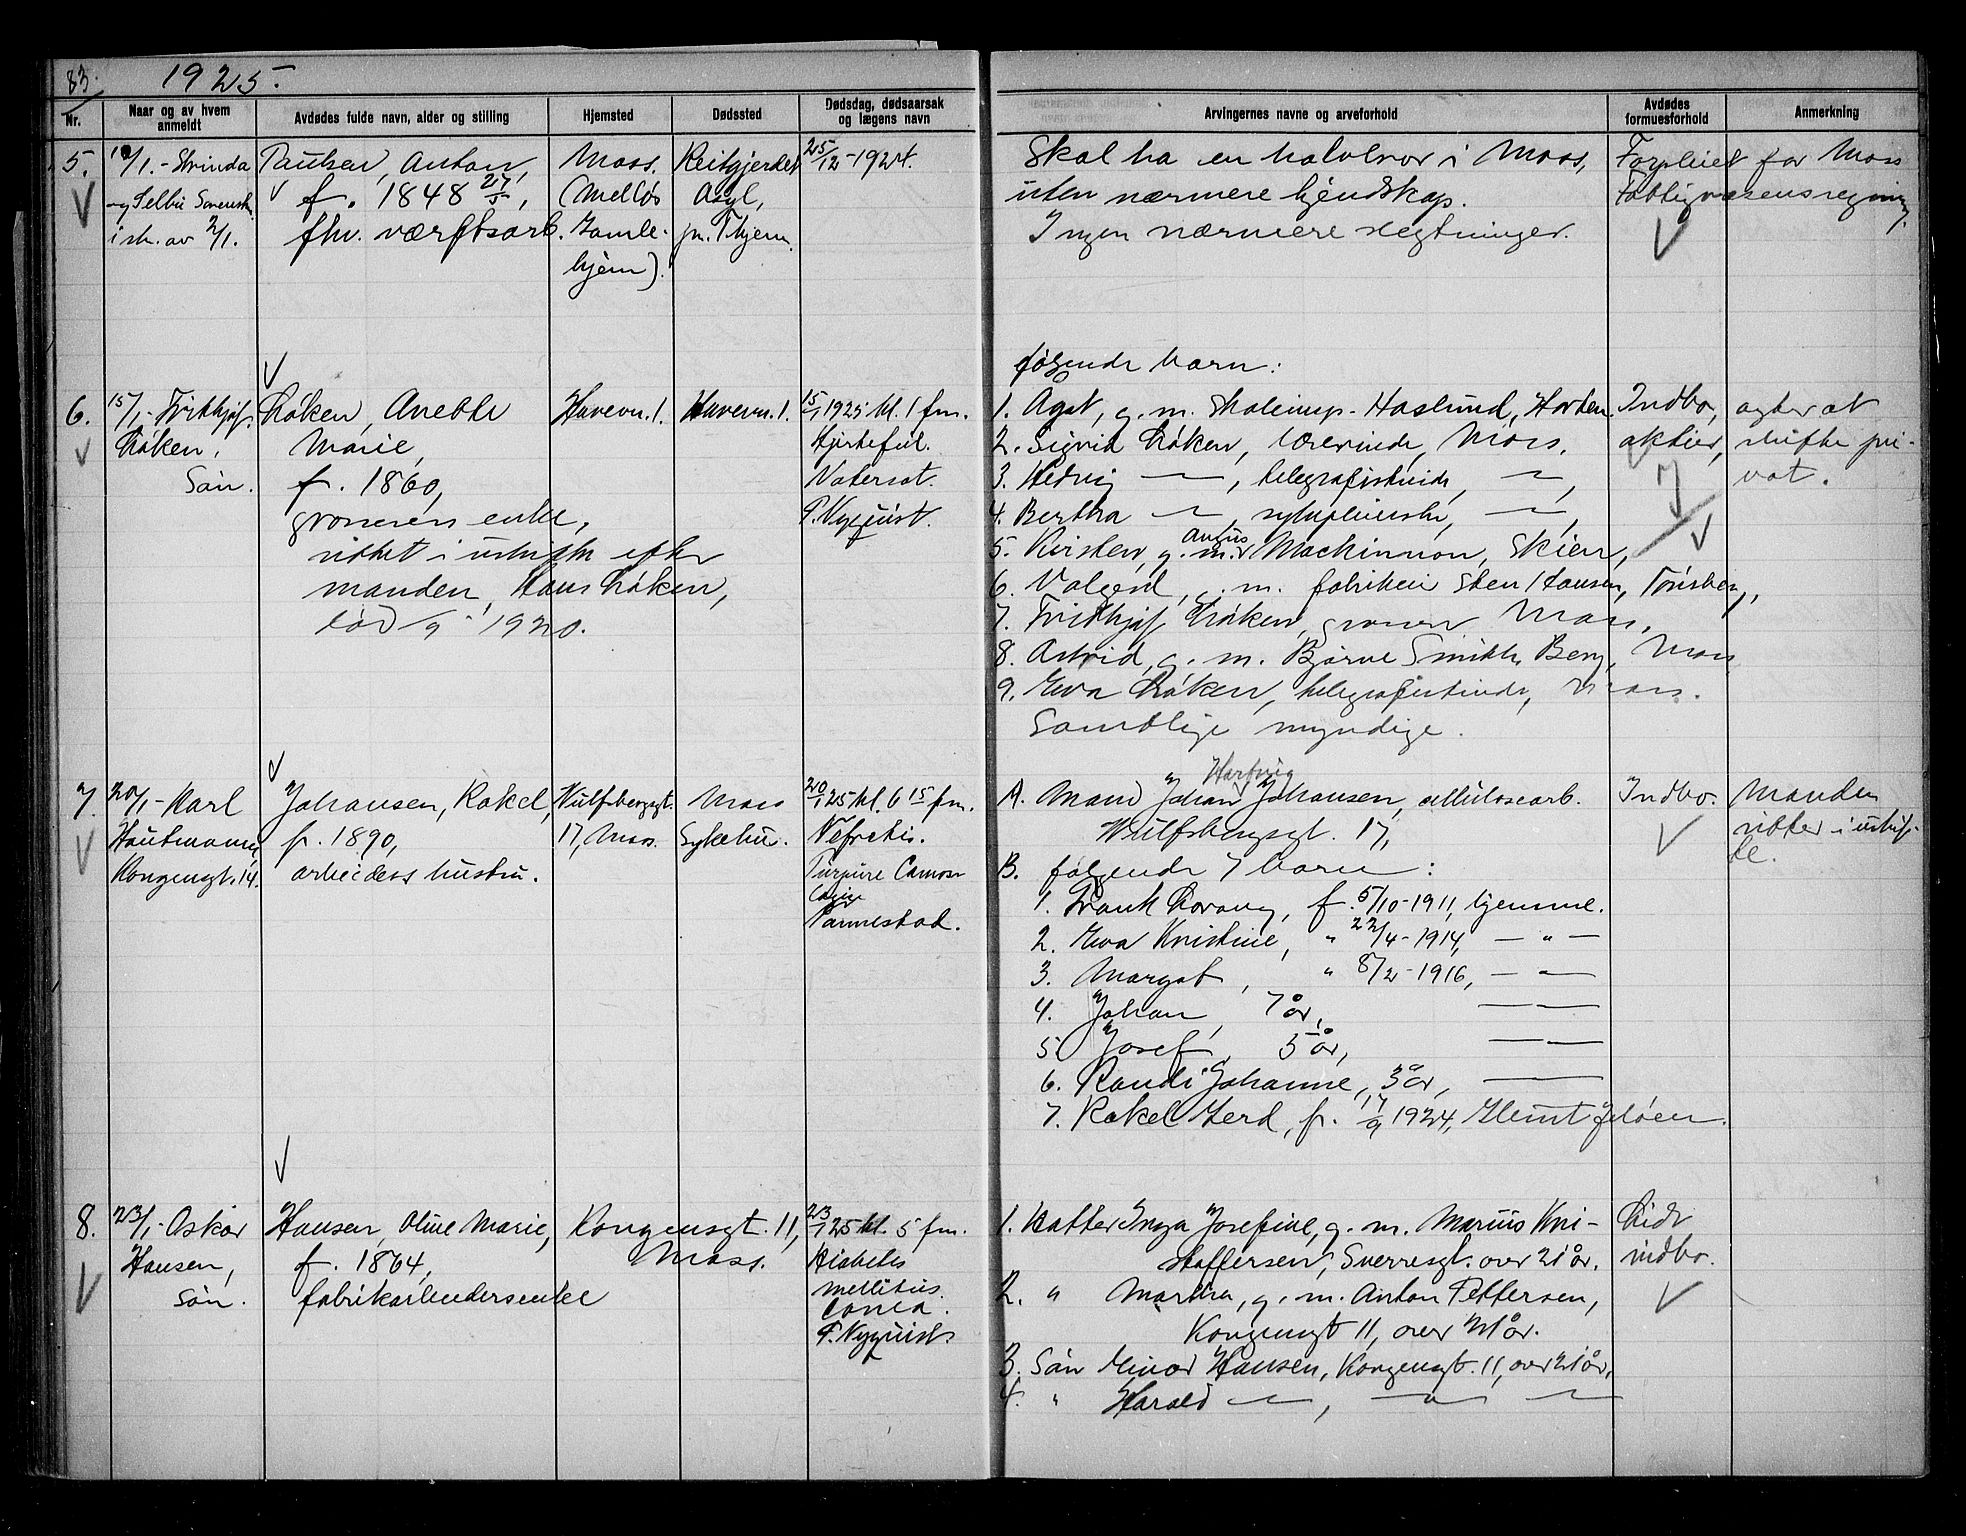 83.
1925.
Nr.
Naar og av hvem anmeldt
Avdødes fulde navn, alder og stilling
Hjemsted
Dødssted
Dødsdag, dødsaarsak og lægens navn
Arvingernes navne og arveforhold
Avdødes formuesforhold
Anmerkning
5.
10/1.- Strinda
og Selbu Sorensk.
i skr. av 2/1.
Paulsen, Anton,
f. 1848 27/5,
fhv. værftsarb.
Moss.
(Melløs
Gamle-
hjem).
Reitgjerdet
Asyl,
pr. Thjem.
25/12-1924.
Skal ha en halvbror i Moss,
uten nærmere kjendskap.
Ingen nærmere slegtninger.
Forpleiet for Moss
Fattigvæsens regning.
6.
15/1.- Fridthjof
Røken,
Søn.
Røken, Anette
Marie,
f. 1860,
grosserers enke,
sittet i uskifte efter
manden, Hans Røken,
død /9 1920.
Havevn. 1.
Havevn. 1.
15/1 1925 kl. 1 fm.
Hjertefeil.
Vatersot.
P. Nyquist.
følgende barn:
1. Agot, g. m. Haslund, Horten.
2. Sigrid Røken, lærerinde, Moss.
3. Hedvig — , telegrafistinde, — ,
4. Bertha — , sykepleierske, — ,
5. Kirsten, g. m. Angus Mackinnon, Skien,
6. Valgerd, g. m. fabrikeier Sten Hansen, Tønsberg,
7. Fridthjof Røken, grosser, Moss,
8. Astrid, g. m. Bjarne Smith, Berg, Moss
9. Eva Røken, telegrafistinde, Moss.
Samtlige myndige.
Indbo,
aktier,
agter at
skifte pri-
vat.
7.
20/1- Karl
Hautmann,
Kongensgt. 14.
Johansen, Rakel,
f. 1890,
arbeiders hustru.
Wulfsbergsgt.
17, Moss.
Moss
Sykehus.
20/1 25 kl. 6 15 fm.
Nefretis.
Parmestad.
A. Mand Johan Hartvig Johansen, cellulosearb.
Wulfsbergsgt. 17,
B. følgende 7 barn:
1. Frank Lorang, f. 5/10-1911, hjemme.
2. Eva Kristine, " 22/4-1914, — " —
3. Margot, " 8/2-1916, — —
4. Johan, 7 år, — —
5. Josef, 5 år, — —
6. Randi Johanne, 3 år, — —
7. Rakel Gerd, f. 17/9 1924, Glemt Jeløen.
Indbo.
Manden
sitter i uskif-
te.
8.
23/1- Oskar
Hansen,
Søn.
Hansen, Oline Marie,
f. 1864,
fabrikarbeidersenke
Kongensgt. 11,
Moss.
23/1 25 kl. 5 fm.
Diabetes
mellitus.
Coma.
P. Nyquist.
1. Datter Inga Josefine, g. m. Marius Kri-
stoffersen, Sverresgt. over 21 år.
2. " Martha, g. m. Anton Pettersen,
Kongensgt 11, over 21 år.
3. Søn Einar Hansen, Kongensgt. 11, over 21 år,
4. " Harald — , — " —
Lidt
indbo.